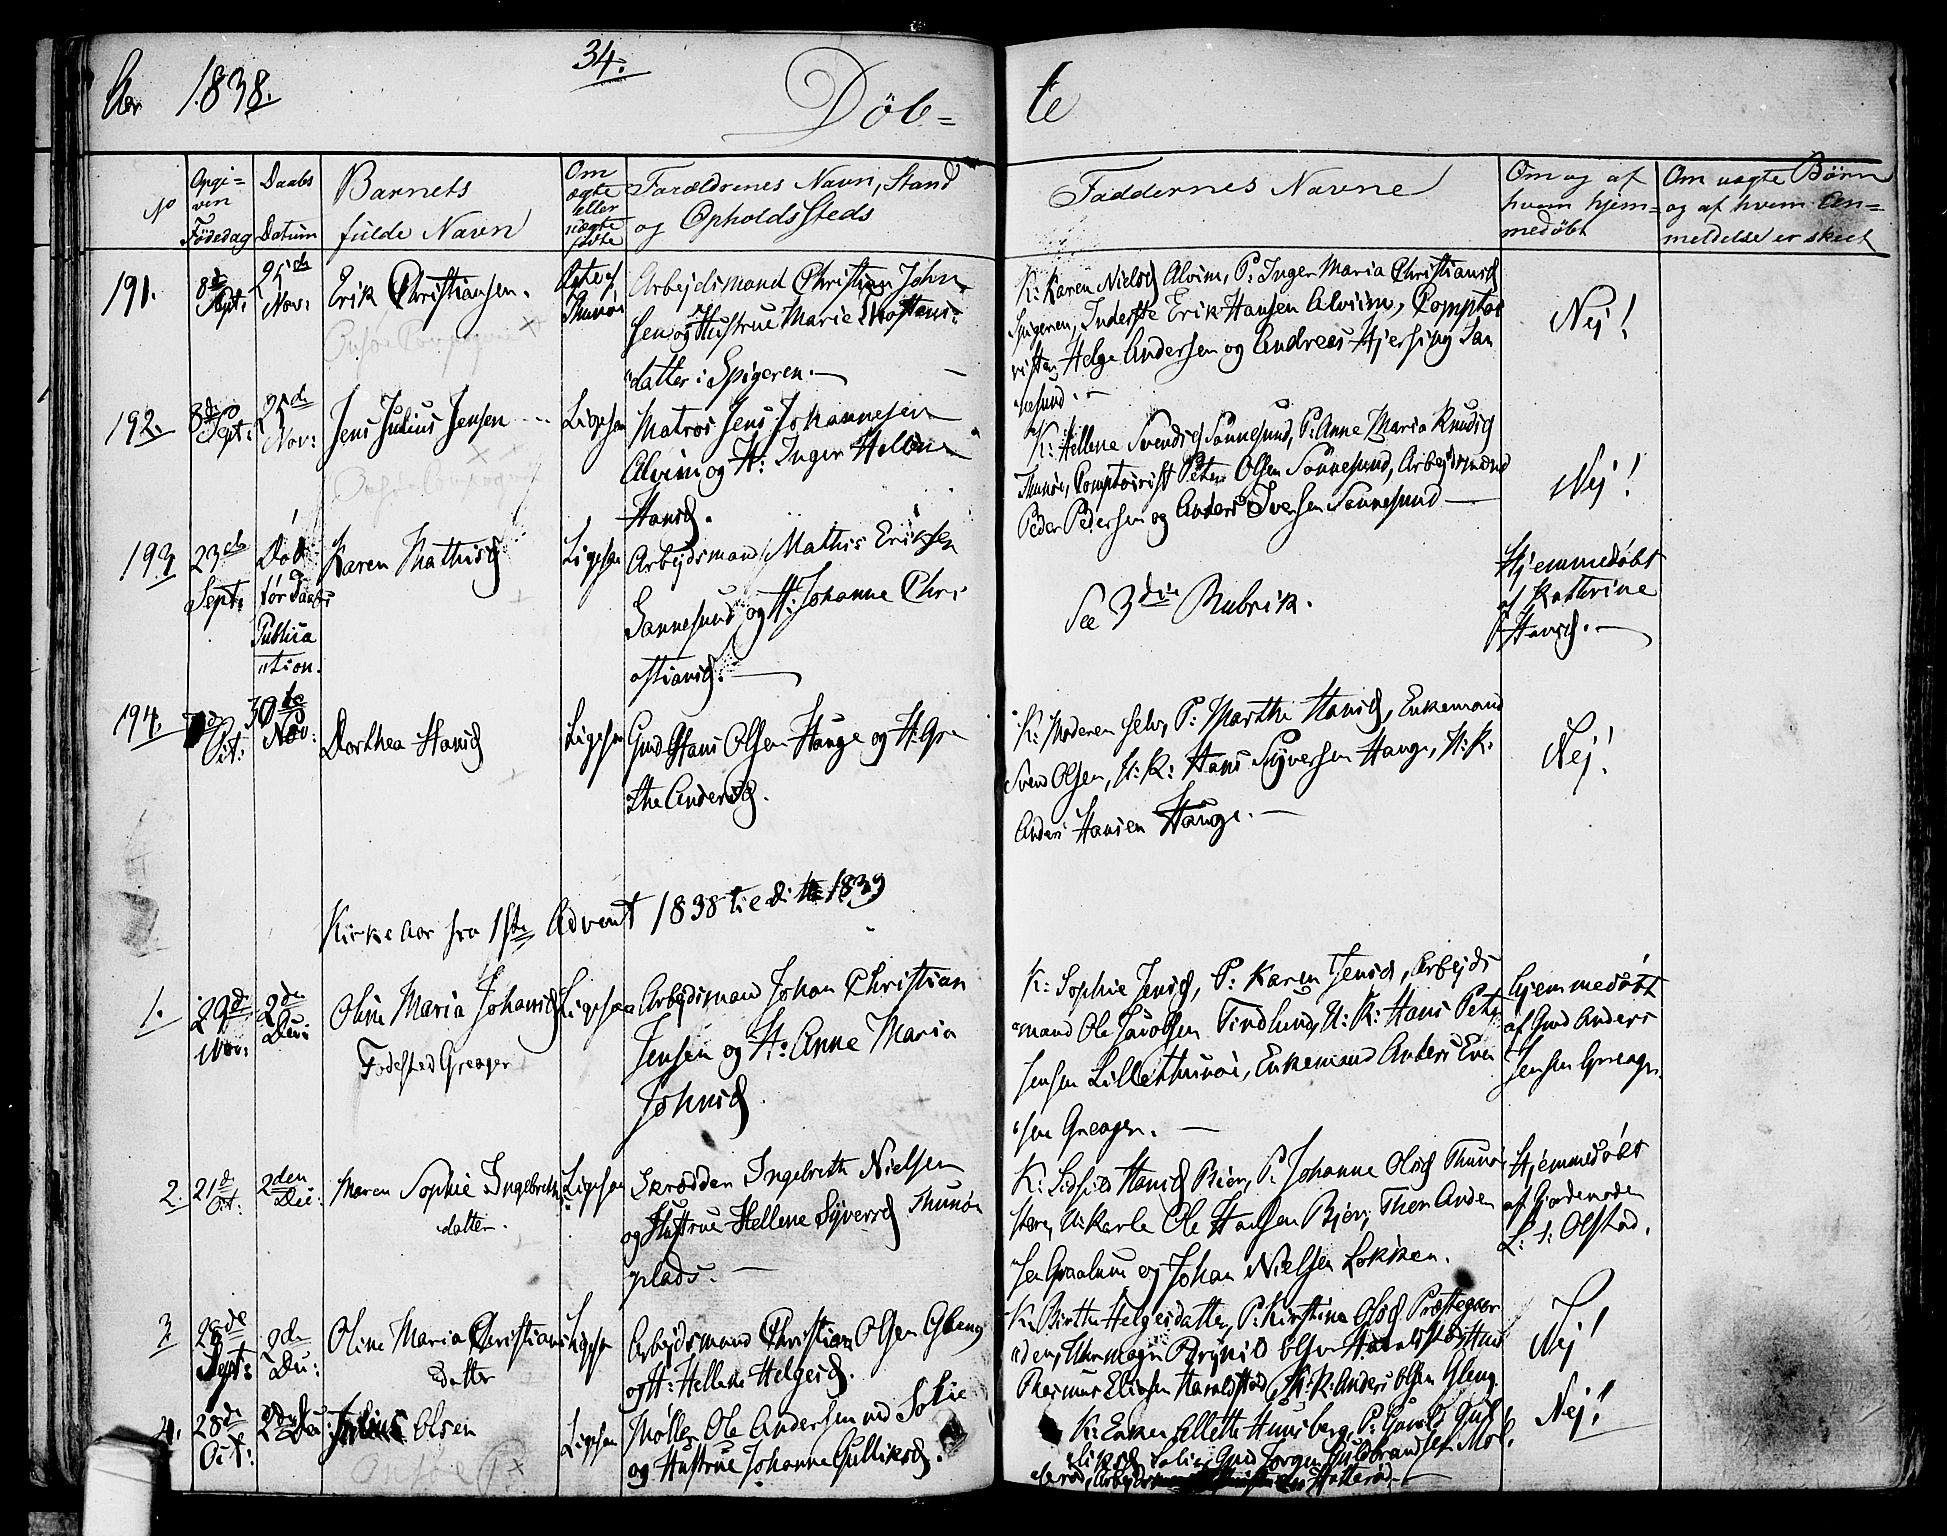 Aar 1838.
34.
Døb=
te
No
Opgi=
ven
Fødedag
Daabs
Datum
Barnets
fulde Navn
Om
ægte
eller
uægte
fødte
Forældrenes Navn, Stand
og OpholdsSteds
Faddernes Navne
Om og af
hvem hjem=
medøbt
Om uægte Børn
og af hvem An=
meldelse er skeet
191.
8de
Sept:
25de
Nov:
Erik Christiansen.
Ægte
Thunøi
Arbejdsmand Christian John
sen og Hustrue Marie
datter i Spigeren.
K: Karen Nielsd Alvim, P: Inger Maria Christiansd
Spigeren, Inderste Erik Hansen Alvim, Comptoi
risten Helge Andersen og Andreas Hjersing San
nesund.
Nej!
192.
8de
Sept:
25de
Nov:
Jens Julius Jensen
Ligesaa
Matros Jens Johannesen
Alvim og H: Inger Hellene
Hansd.
K: Hellene Svendsd Sannesund, P: Anne Maria Knudsd
Thunøi, Comptoirist Peter Olsen Sannesund, Arbejdsmænd
Peder Pedersen og Anders Iversen Sannesund
Nej!
193
23de
Sept:
Død
før Daabs
Publica
tion.
Karen Mathisd
Ligesaa
Arbejdsmand Mathis Eriksen
Sannesund og H: Johanne Chri
stiansd.
See 3die Rubrik.
Hjemmedøbt
af Kathrine
Hansd.
194.
Oct:
30te
Nov:
Dorthea Hansd
Ligesaa
Gmd Hans Olsen Hauge og H: Gre
the Andersd.
K: Moderen selv, P: Marthe Hansd, Enkemand
Svend Olsen, U: K: Hans Syversen Hauge, U: K:
Anders Hansen Hauge.
Nej!
Kirke Aar fra 1ste Advent 1838 til dito 1839
1.
29de
Nov:
2den
Dec:
Oline Maria Johansd
Fødested Greager
Ligesaa
Arbejdsmand Johan Christian
Jensen og H: Anne Maria
Johnsd
K: Sophie Jensd, P: Karen Jensd, Arbejds
mand Ole Jacobsen Tindlund, U: K: Hans Peter
Jensen Lillethunøi, Enkemand Anders Even
sen Greager.
hjemmedøbt
af Gmd Anders
Jensen Greager.
2.
21de
Oct:
2den
Dec:
Maren Sophie Ingebreths
datter.
Ligesaa
Skrædder Ingebreth Nielsen
og Hustrue Hellene Syversd Thunøi
plads.
K: Hansd Bjer, P: Johanne Olsd Thunø
Ukarle Ole Hansen Bjer, Thor Ander
sen Graalum og Johan Nielsen Løkken.
Hjemmedøbt
af Gjordemoder
L: S: Olstad.
3.
28de
Sept:
2den
Dec:
Oline Maria Christians
datter
Ligesaa
Arbejdsmand Christian Olsen Gleng
og H: Hellene Helgesd.
K: Birthe Helgesdatter, P: Kirstine Olsd Præstegaar
den, Uhrmager Brynild Olsen
Rasmus Eliasen Haraldstad, U: K: Anders Olsen Gleng.
Nej!
4.
28de
Oct:
2den
Dec:
Julius Olsen
Ligesaa
Møller Ole Andersen ved Solie
og Hustrue Johanne Gulliksd.
K: Enken Allette Hunsberg, P: Gunild Gul
liksd Solie, Gmd Jørgen Guldbrandsen Mos
Nej!